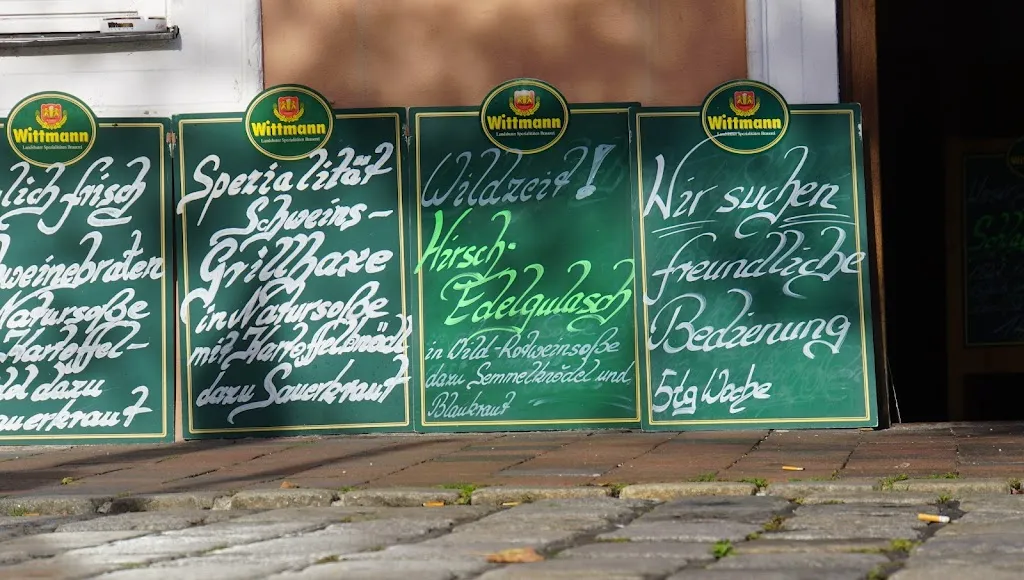 Wittmann
Landshuter Spezialitäten Brauerei
lich frisch
weinebraten
Natursoße
Kartoffel-
dazu
auerkraut
Wittmann
Landshuter Spezialitäten Brauerei
Spezialität
Schweins-
Grillhaxe
in Natursoße
mit Kartoffelknödl
dazu Sauerkraut
Wittmann
Landshuter Spezialitäten Brauerei
Wildzeit!
Hirsch-
Edelgulasch
in Wild-Rotweinsoße
dazu Semmelknödel und
Blaukraut
Wittmann
Landshuter Spezialitäten Brauerei
Wir suchen
freundliche
Bedienung
5tg Woche